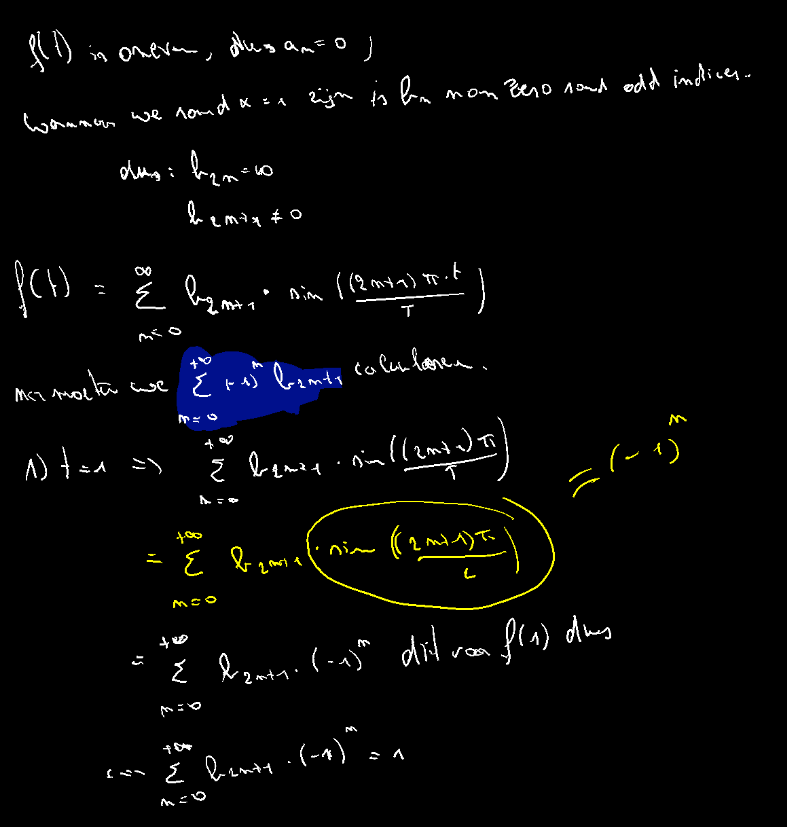 f(t) is oneven, dus aₙ = 0 ;
we rond x = 1 zijn is bₙ non zero rond odd indices.
dus: b₂ₙ = 0
b₂ₙ₊₁ ≠ 0
f(t) = ∑_{n=0}^{∞} b₂ₙ₊₁ · sin((2n+1)π·t / T)
we ∑_{n=0}^{+∞} (-1)ⁿ b₂ₙ₊₁
1) t=1 => ∑_{n=0}^{+∞} b₂ₙ₊₁ · sin((2n+1)π / T)
= (-1)ⁿ
= ∑_{n=0}^{+∞} b₂ₙ₊₁ · sin((2n+1)π / 2)
= ∑_{n=0}^{+∞} b₂ₙ₊₁ · (-1)ⁿ dit voor f(1) dus
∑_{n=0}^{+∞} b₂ₙ₊₁ · (-1)ⁿ = 1